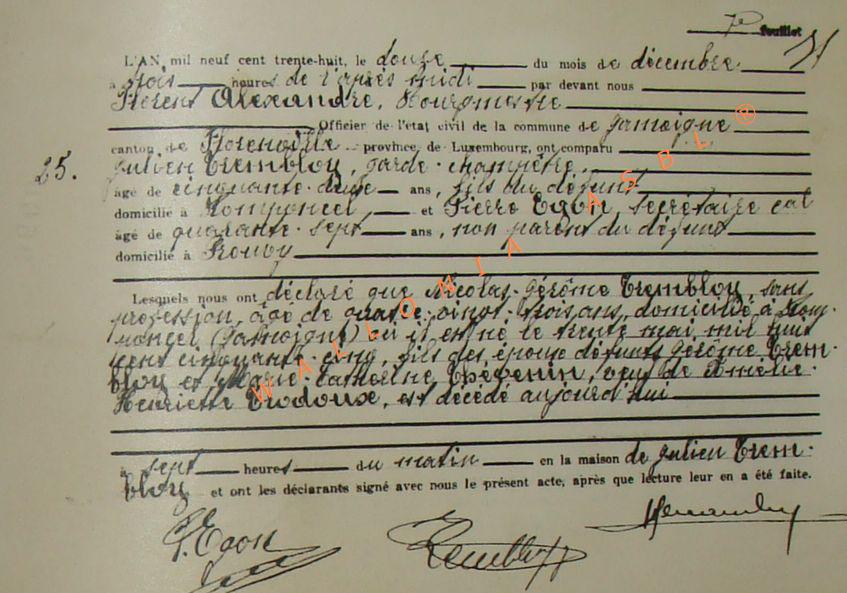 7e feuillet
L'AN mil neuf cent trente-huit, le douze du mois de décembre
à trois heures de l'après midi par devant nous
Florent Alexandre, Bourgmestre
Officier de l'état civil de la commune de Jamoigne
canton de Florenville province de Luxembourg, ont comparu
25. Julien Trembloy, garde-champêtre,
âgé de cinquante-deux ans, fils du défunt
domicilié à Romponcel et Pierre Egon, secrétaire cal
âgé de quarante-sept ans, non parent du défunt
domicilié à Prouvy
Lesquels nous ont déclaré que Nicolas-Gérôme Trembloy, sans
profession, âgé de quatre-vingt-trois ans, domicilié à Rom-
poncel (Jamoigne) où il est né le trente mai mil huit
cent cinquante-cinq, fils des époux défunts Gérôme Trem-
bloy et Marie-Catherine Thévenin, veuf de Amélie-
Henriette Trodoux, est décédé aujourd'hui
à sept heures du matin en la maison de Julien Trem-
bloy et ont les déclarants signé avec nous le présent acte, après que lecture leur en a été faite.
P. Egon Trembloy
WALLONIA ASBL ®